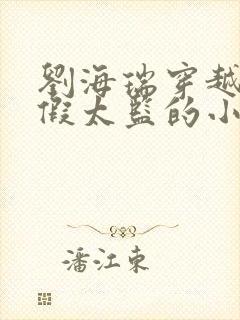 劉海瑞穿越
假太監的小
潘江東